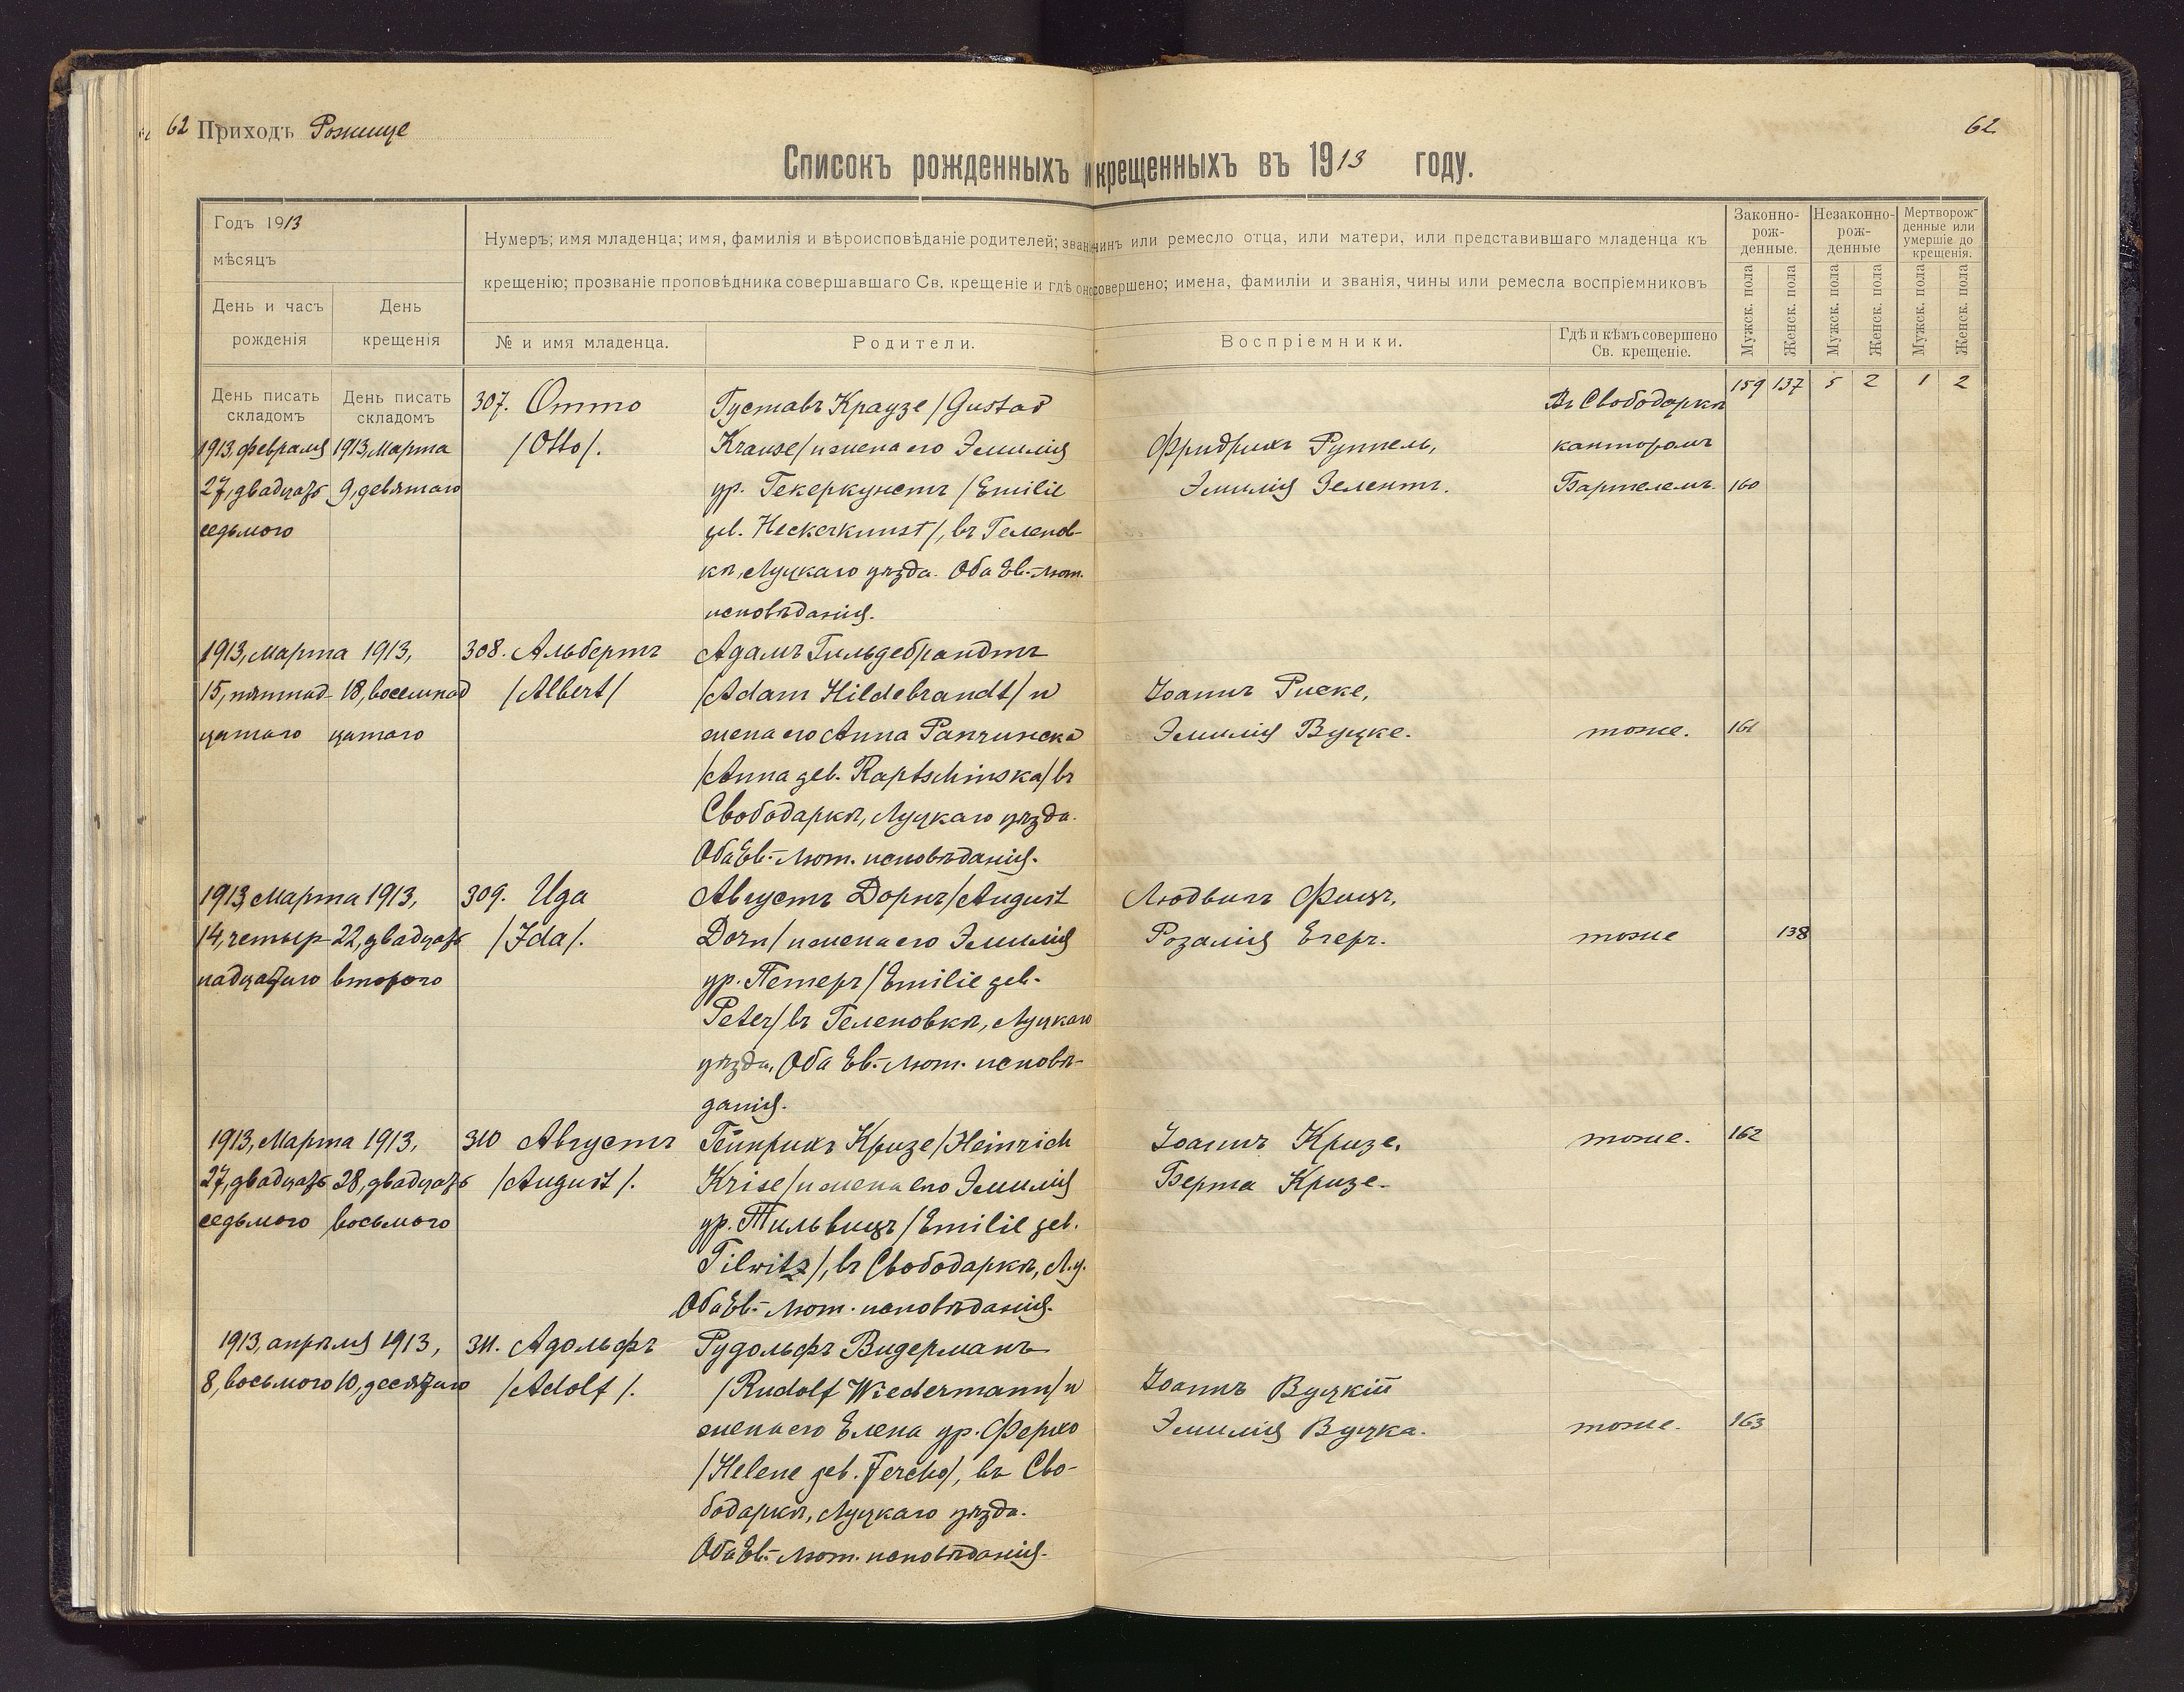 62 Приходъ Рожище
62
Списокъ рожденныхъ и крещенныхъ въ 1913 году.
Годъ 1913
мѣсяцъ
День и часъ рожденія
День крещенія
Нумеръ; имя младенца; имя, фамилія и вѣроисповѣданіе родителей; званіе чинъ или ремесло отца, или матери, или представившаго младенца къ
крещенію; прозваніе проповѣдника совершавшаго Св. крещеніе и гдѣ оно совершено; имена, фамиліи и званія, чины или ремесла воспріемниковъ
№ и имя младенца.
Родители.
Воспріемники.
Гдѣ и кѣмъ совершено
Св. крещеніе.
Законно-
рож-
денные.
Незаконно-
рож-
денные
Мертворож-
денные или
умершіе до
крещенія.
Мужск. пола
Женск. пола
Мужск. пола
Женск. пола
Мужск. пола
Женск. пола
День писать
складомъ
День писать
складомъ
159 137 5 2 1 2
1913, февраля
27, двадцать
седьмого
1913, Марта
9, девятаго
307. Отто
/Otto/.
Густавъ Краузе /Gustav
Krause/ и жена его Эмилія
ур. Гекеркунстъ /Emilie
geb. Heckerkunst/, въ Геленов-
кѣ, Луцкаго уѣзда. Оба Ев.-Лют.
исповѣданія.
Фридрихъ Руппель,
Эмилія Зелентъ.
Въ Свободаркѣ
канторомъ
Бартелемъ.
160
1913, Марта
15, пятнад-
цатаго
1913,
18, восемнад
цатаго
308. Альбертъ
/Albert/
Адамъ Гильдебрандтъ
/Adam Hildebrandt/ и
жена его Анна Рапчинска
/Anna geb. Raptschinska/ въ
Свободаркѣ, Луцкаго уѣзда.
Оба Ев.-Лют. исповѣданія.
Іоаннъ Риске,
Эмилія Вуцке.
тоже.
161
1913, Марта
14, четыр-
надцатаго
1913,
22, двадцать
второго
309. Ида
/Ida/.
Августъ Дорнъ /August
Dorn/ и жена его Эмилія
ур. Петеръ /Emilie geb.
Peter/ въ Геленовкѣ, Луцкаго
уѣзда, Оба Ев.-Лют. исповѣ-
данія.
Людвигъ Фицъ,
Розалія Егеръ.
тоже
138
1913, Марта
27, двадцать
седьмого
1913,
28, двадцать
восьмого
310 Августъ
/August/.
Гейнрихъ Кризе /Heinrich
Krise/ и жена его Эмилія
ур. Тильвицъ /Emilie geb.
Tilwitz/, въ Свободаркѣ, Л.у.
Оба Ев.-Лют. исповѣданія.
Іоаннъ Кризе,
Берта Кризе.
тоже.
162
1913, апрѣля
8, восьмого
1913,
10, десятаго
311. Адольфъ
/Adolf/.
Рудольфъ Видерманъ
/Rudolf Wiedermann/ и
жена его Елена ур. Ферхо
/Helene geb. Fercho/, въ Сво-
бодаркѣ, Луцкаго уѣзда.
Оба Ев.-Лют. исповѣданія.
Іоаннъ Вуцкій
Эмилія Вуцка.
тоже.
163